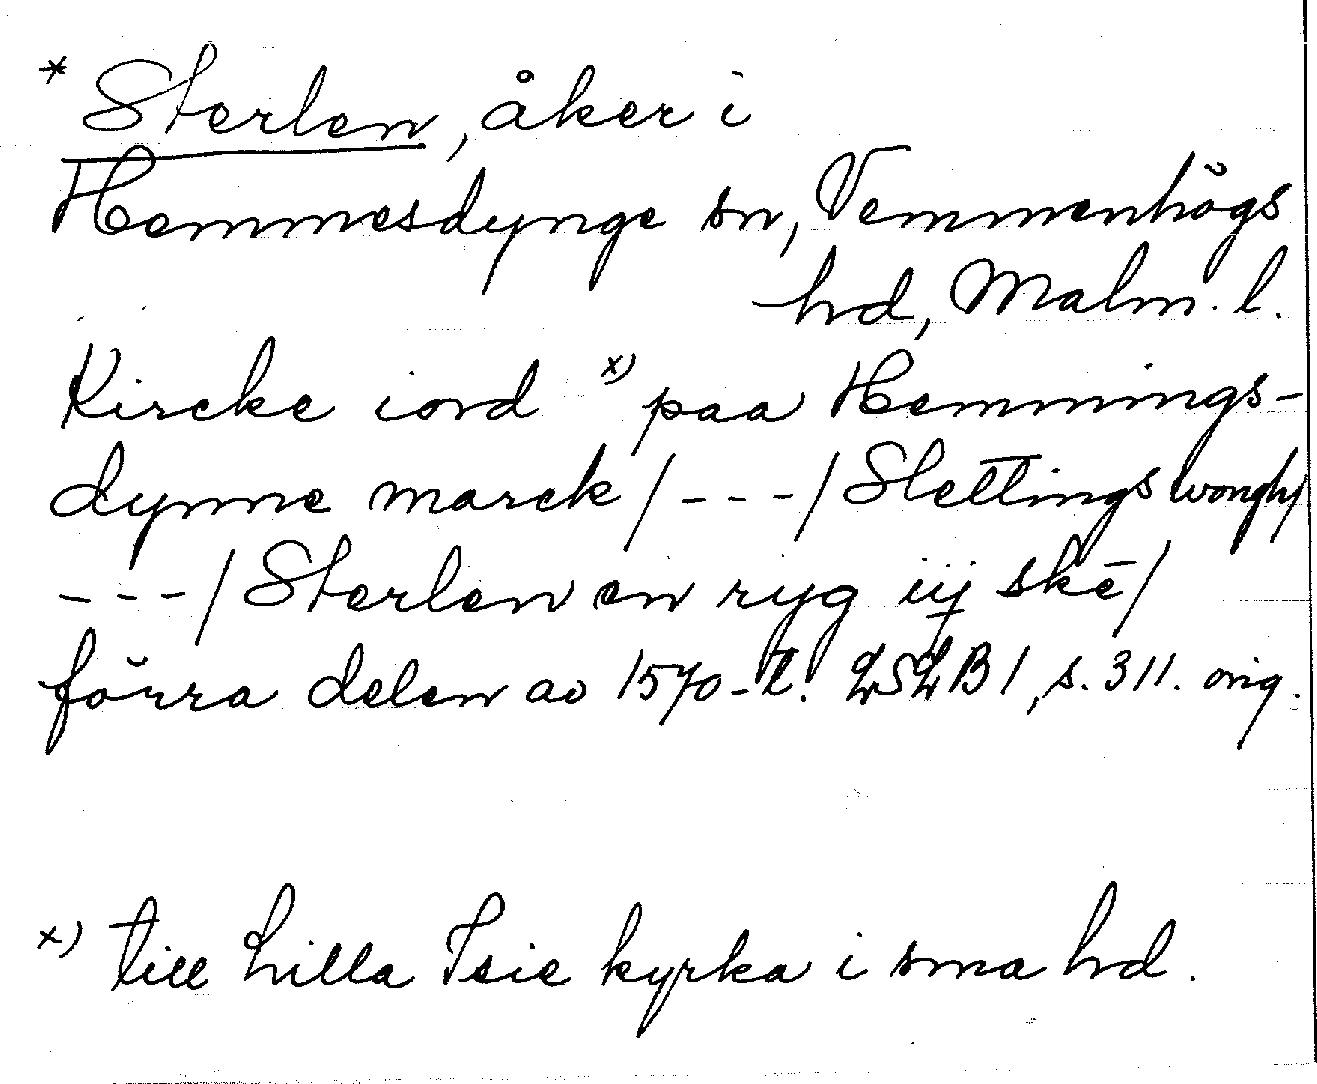 * Sterlen, åker i
Hemmesdynge sn, Vemmenhögs
hd, Malm. l.
Kircke iord x) paa Hemmings-
dynne marck/---/Slettingswongh/
---/Sterlen en ryg iij skē/
förra delen av 1570-t. LSLB 1, s. 311. orig.
x) till Lilla Isie kyrka i sma hd.